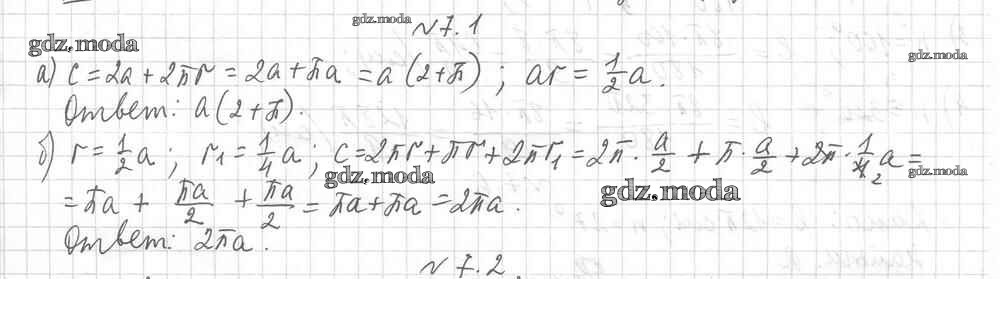 gdz.moda
№ 7.1
gdz.moda
gdz.moda
а) C = 2a + 2πr = 2a + πa = a (2+π) ; ar = 1/2 a .
Ответ: a (2+π).
б) r = 1/2 a ; r₁ = 1/4 a ; c = 2πr + πr + 2πr₁ = 2π · a/2 + π · a/2 + 2π · 1/4 2 a =
gdz.moda
gdz.moda
gdz.moda
= πa + πa/2 + πa/2 = πa + πa = 2πa .
Ответ: 2πa .
№ 7.2 .